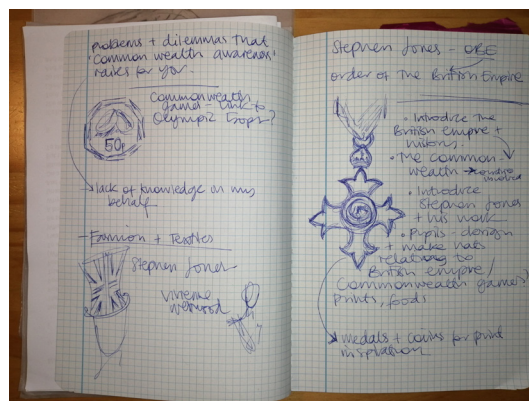 problems + dilemmas that
'common wealth awareness'
raises for you.
Commonwealth
games - link to
Olympic
50p
lack of knowledge on my
behalf
- Fashion + Textiles
Stephen Jones
Vivienne
Westwood
Stephen Jones - OBE
Order of The British Empire
• Introduce The
British empire +
• The common-
wealth →
involved
• Introduce
Stephen Jones
+ his work
• Pupils - design
+ make hats
relating to
British empire /
Commonwealth games/
prints, foods
medals + coins for print
inspiration